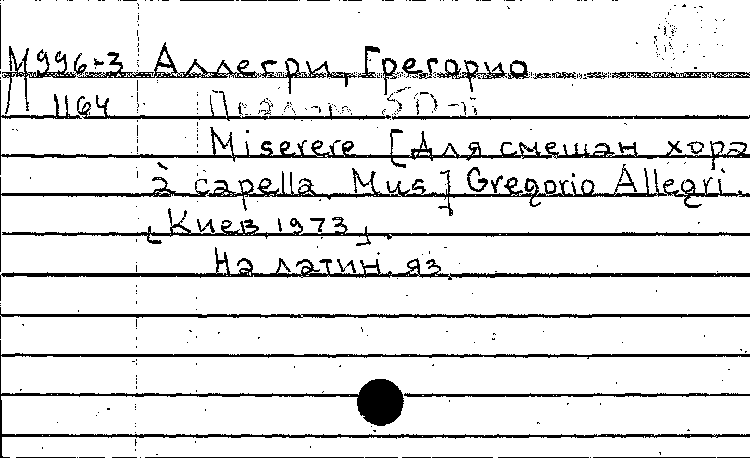 М 996-3 Аллегри, Грегорио
1164 Псалом 50-й
Miserere [Для смешан. хора
à capella. Mus.] Gregorio Allegri.
[Киев, 1973].
На латин. яз.